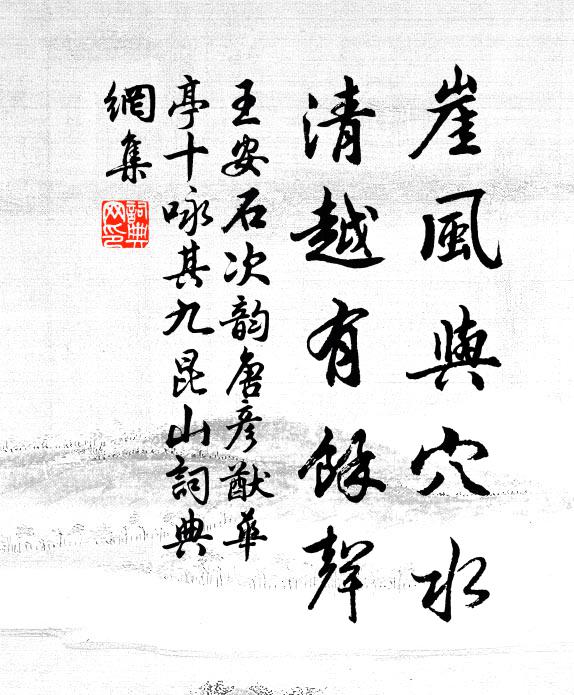 崖風與穴水
清越有餘聲
王安石次韵唐彥猷華
亭十咏其九昆山詞典
網集
詞典
网印